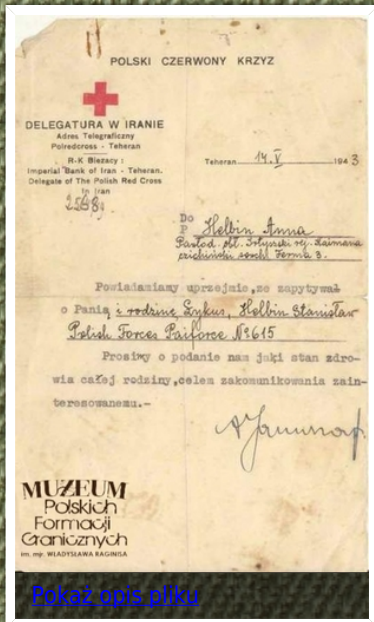 POLSKI CZERWONY KRZYZ
DELEGATURA W IRANIE
Adres Telegraficzny
Polredcross - Teheran
R-K Biezacy :
Imperial Bank of Iran - Teheran.
Delegate of The Polish Red Cross
In Iran
Teheran 14.V 1943
Do
P Helbin Anna
obl. rej.
Ferma 3.
Powiadamiamy uprzejmie, ze zapytywał
o Panią i rodzinę Zykus, Helbin Stanisław
Polish Forces Paiforce № 615
Prosimy o podanie nam jaki stan zdro-
wia całej rodziny, celem zakomunikowania zain-
teresowanemu.-
MUZEUM
Polskich
Formacji
Granicznych
im. mjr. WŁADYSŁAWA RAGINISA
Pokaż opis pliku